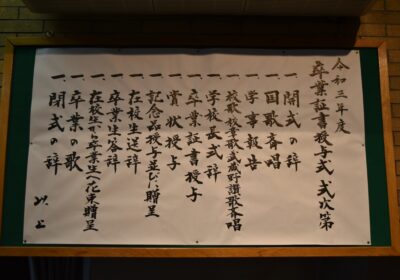 令和三年度
卒業証書授与式 式次第
一、開式の辞
一、国歌斉唱
一、学事報告
一、校歌・校章歌・武蔵野讃歌斉唱
一、学校長式辞
一、卒業証書授与
一、賞状授与
一、記念品授与並びに贈呈
一、在校生送辞
一、卒業生答辞
一、在校生から卒業生へ花束贈呈
一、卒業の歌
一、閉式の辞
以上